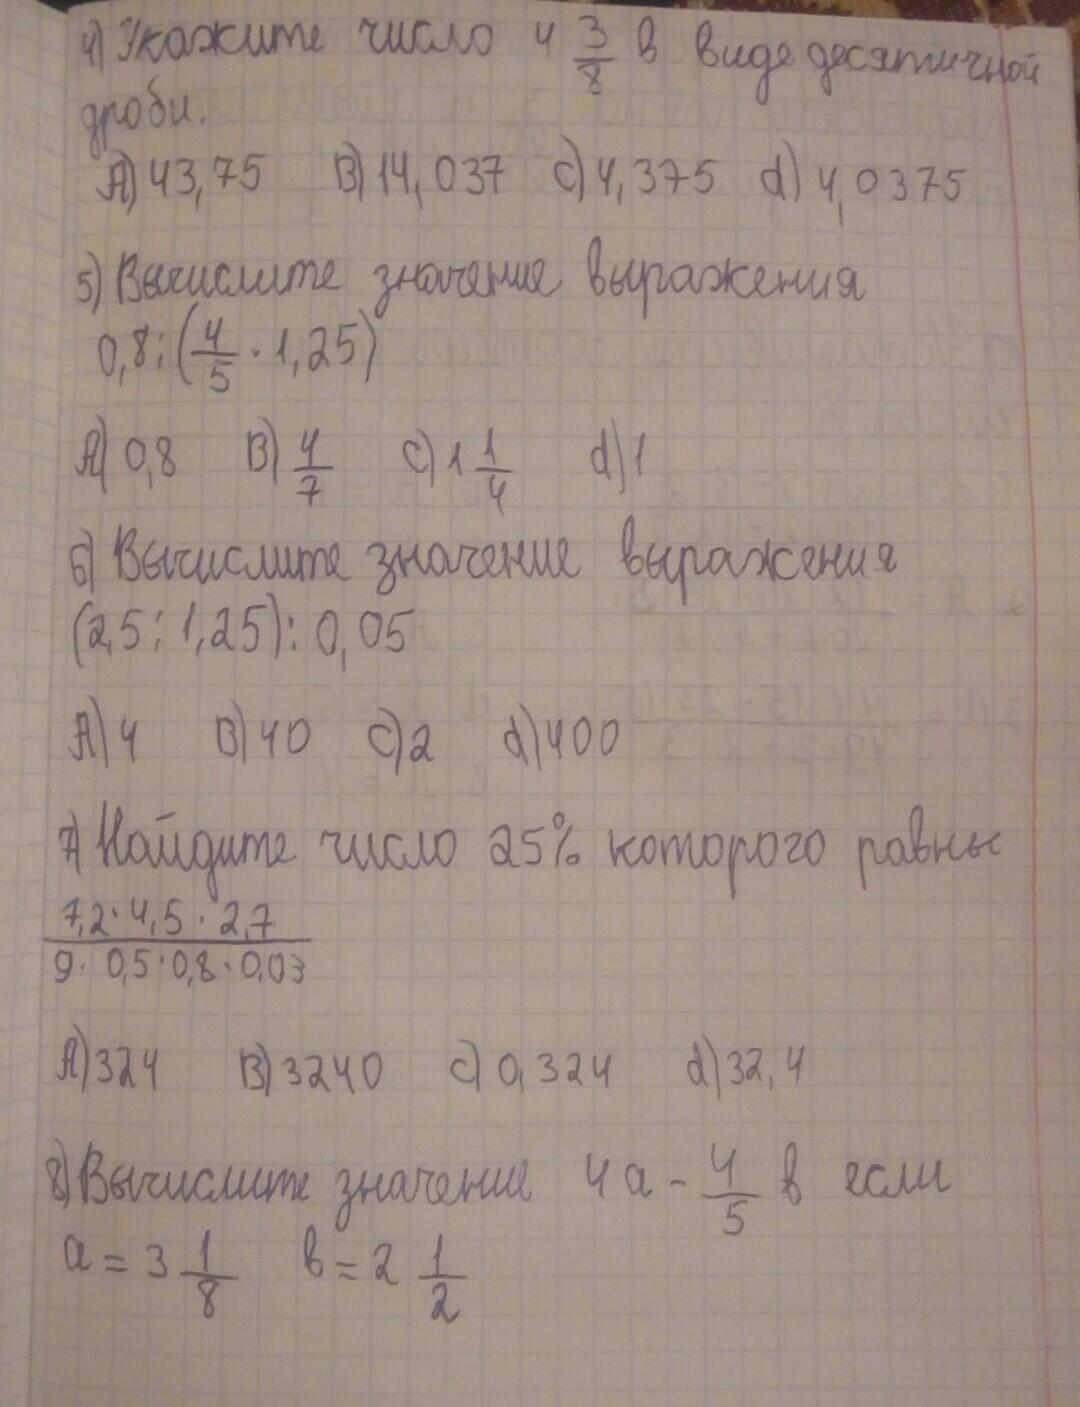 4) Укажите число 4 3/8 в виде десятичной
дроби.
А) 43,75 В) 14,037 С) 4,375 d) 4,0375
5) Вычислите значение выражения
0,8 : (4/5 · 1,25)
А) 0,8 В) 4/7 С) 1 1/4 d) 1
6) Вычислите значение выражения
(2,5 : 1,25) : 0,05
А) 4 В) 40 С) 2 d) 400
7) Найдите число 25% которого равны
7,2 · 4,5 · 2,7
9 · 0,5 · 0,8 · 0,03
А) 324 В) 3240 С) 0,324 d) 32,4
8) Вычислите значение 4а - 4/5 в если
а = 3 1/8 в = 2 1/2